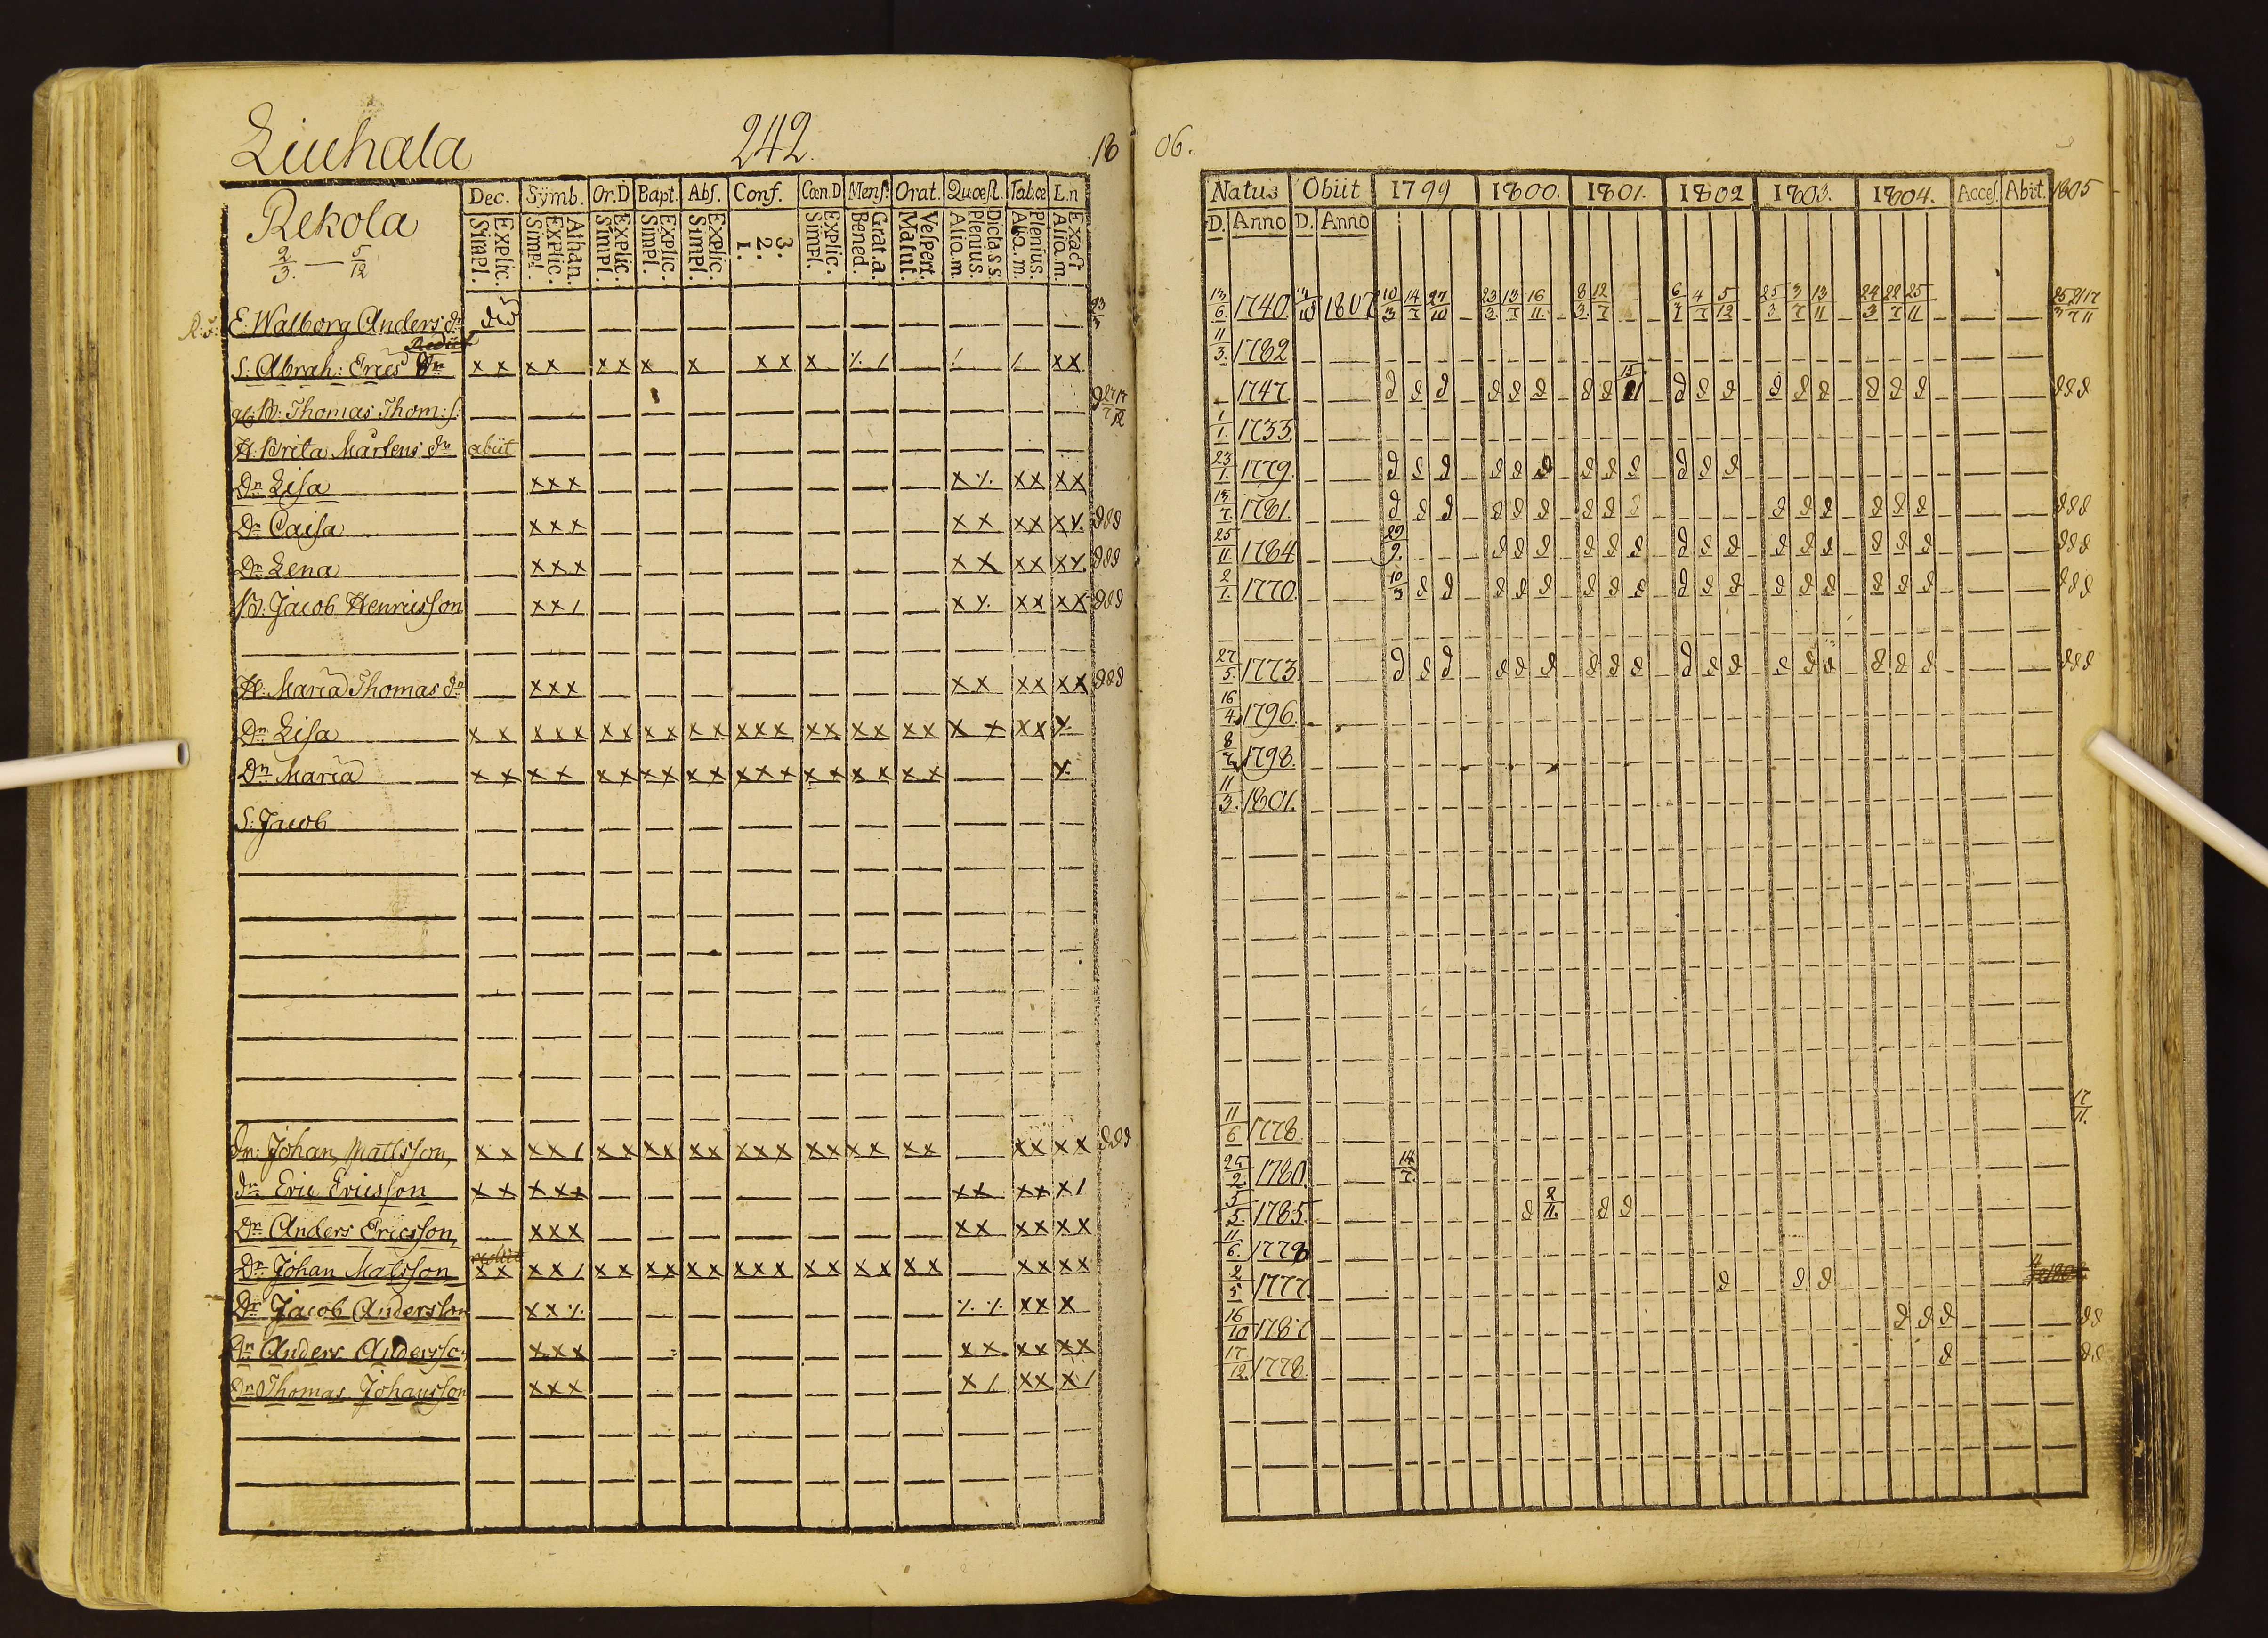 Liuhala 242. 18 06.
Rekola
2/3. — 5/12
Dec. Symb. Or.D Bapt. Abs. Conf. Cœn.D Mens. Orat. Quæst. Tab.œ L.n
Explic. Simpl. Athan. Explic. Simpl. Explic. Simpl. Explic. Simpl. Explic. Simpl. 3. 2. 1. Explic. Simpl. Grat.a. Bened. Vespert. Matut. Dicta s.s. Plenius. Aliq.m. Plenius. Aliq.m. Exact Aliq.m.
Natus Obiit 1799 1800. 1801. 1802 1803. 1804. Acces. Abiit. 1805
D. Anno D. Anno
E. Walborg Anders dr 13/6 1740. 1807 10/3 14/7 27/10 23/3 13/7 16/11 8/3 12/7 6/3 4/7 5/12 25/3 3/7 13/11 24/3 22/7 25/11
S. Abrah: Erics x x x x x x x x x x x x x x 11/3. 1782
Thomas Thom: s. 1747 d d d d d d d d d d d d d d d d d d d d
H. Brita Mårtens dr abiit 1/1. 1733
Dr Lisa x x x x x x x x 23/1. 1779. d d d d d d d d d d d d
Dr Caisa x x x x x x x x d d d 13/7. 1781. d d d d d d d d d d d d d d d d d d
Dr Lena x x x x x x x x d d d 25/11. 1784 29/2. d d d d d d d d d d d d d d d d d d
Jacob Henricsson x x / x x x x x d d d 2/1. 1770. 10/3 d d d d d d d d d d d d d d d d d d d d
H. Maria Thomas dr x x x x x x x x x d d d 27/5. 1773 d d d d d d d d d d d d d d d d d d d d d
Dr Lisa x x x x x x x x x x x x x x x x x x x x x x x x 16/4. 1796.
Dr Maria x x x x x x x x x x x x x x x x x x x 8/7. 1798.
S: Jacob 11/3. 1801.
dr: Johan Mattsson, x x x x / x x x x x x x x x x x x x x x x x x x d d d 11/6 1778. 17/11.
dr Eric Ericsson x x x x x x x x x x / 25/2. 1780. 14/7.
Dr Anders Ericsson, x x x x x x x x x 5/5. 1785. d 2/11. d d
Dr Johan Matsson x x x x / x x x x x x x x x x x x x x x x x x x 11/6. 1778
Dr Jacob Andersson x x x x x 2/5 1777. d d d
Dr Anders Anderss: x x x x x x x x x 16/10 1787 d d d d d
Dr Thomas Johansson x x x x / x x x / 17/12. 1778. d d d